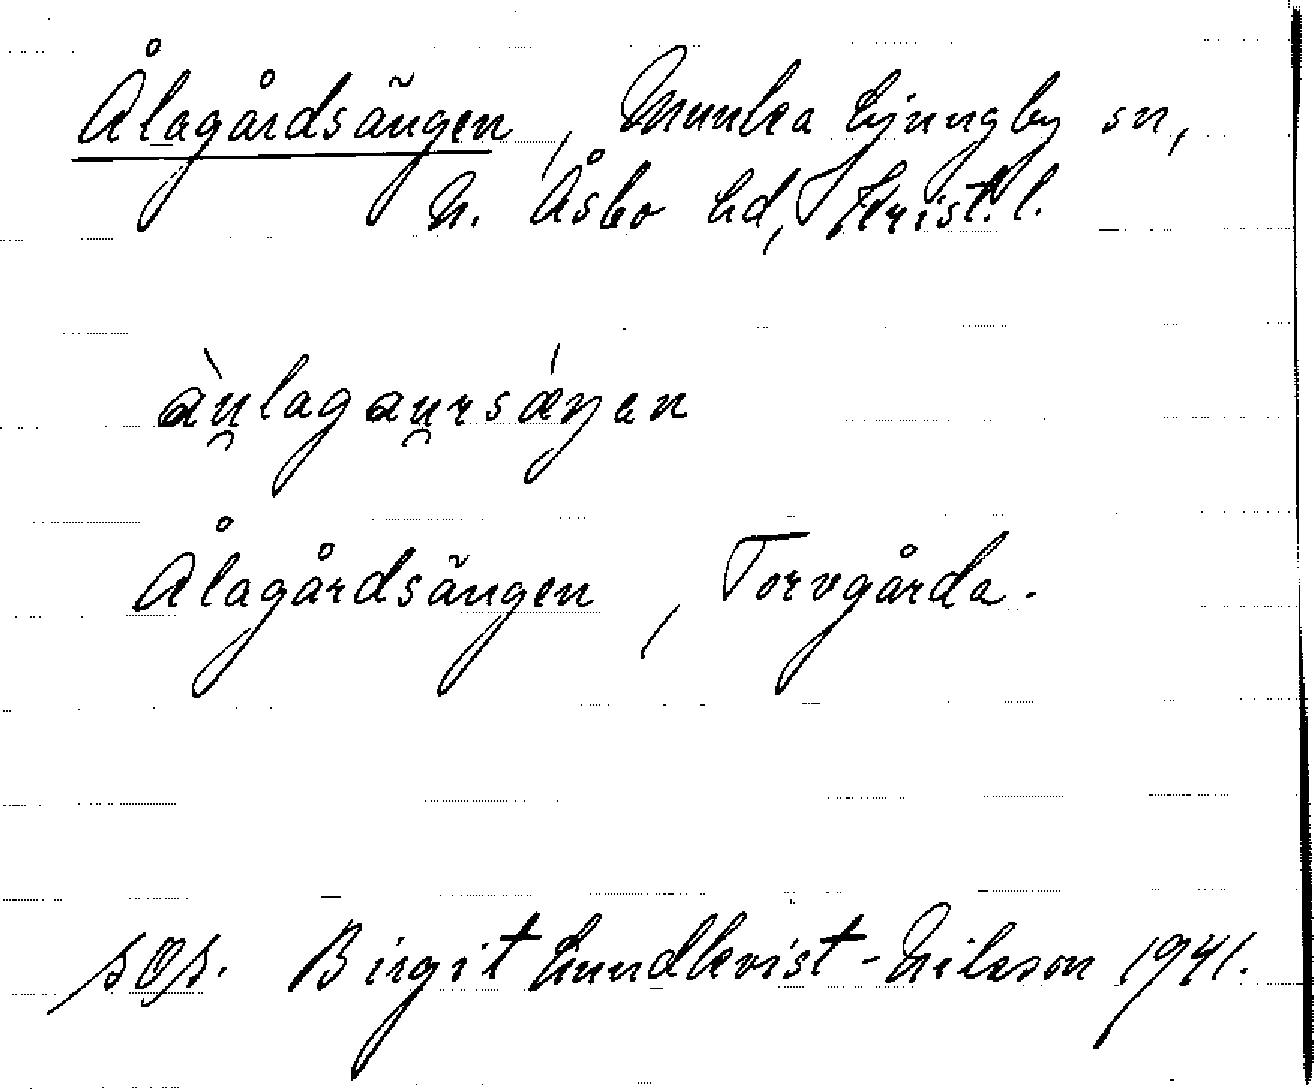 Ålagårdsängen, Munka Ljungby sn,
N. Åsbo hd, Krist. l.
àu̯lagau̯rsǽŋen
Ålagårdsängen, Torvgårda.
Birgit Lundkvist-Nilsson 1941.